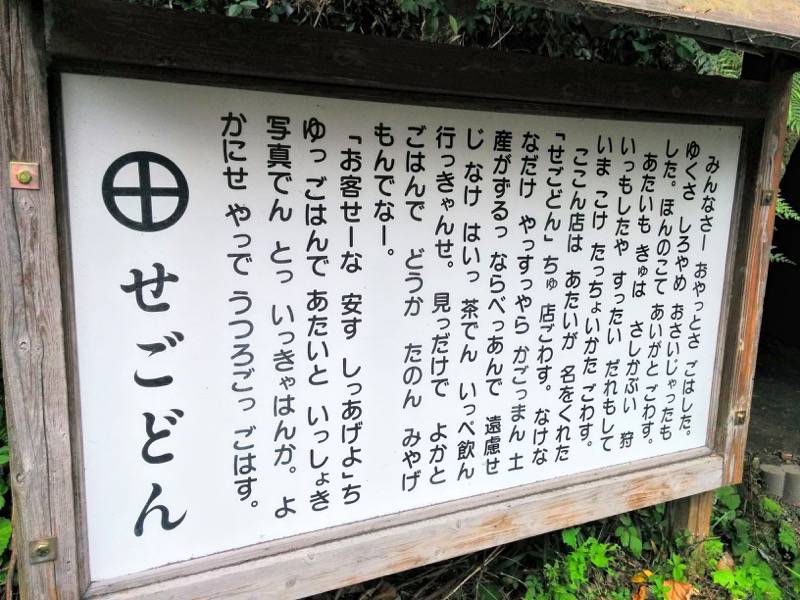 みんなさー おやっとさ ごはした。
ゆくさ しろやめ おさいじゃったも
した。ほんのこて あいがと ごわす。
あたいも きゅは さしかぶい 狩
いっもしたや すったい だれもして
いま こけ たっちょいかた ごわす。
ここん店は あたいが 名をくれた
「せごどん」ちゅ 店ごわす。なけな
なだけ やっすっやら かごっまん 土
産がずるっ ならべっあんで 遠慮せ
じ なけ はいっ 茶でん いっぺ飲ん
行っきゃんせ。 見っだけで よかと
ごはんで どうか たのん みやげ
もんでなー。
「お客せーな 安す しっあげよ」ち
ゆっ ごはんで あたいと いっしょき
写真でん とっ いっきゃはんか。よ
かにせ やっで うつろごっ ごはす。
せごどん